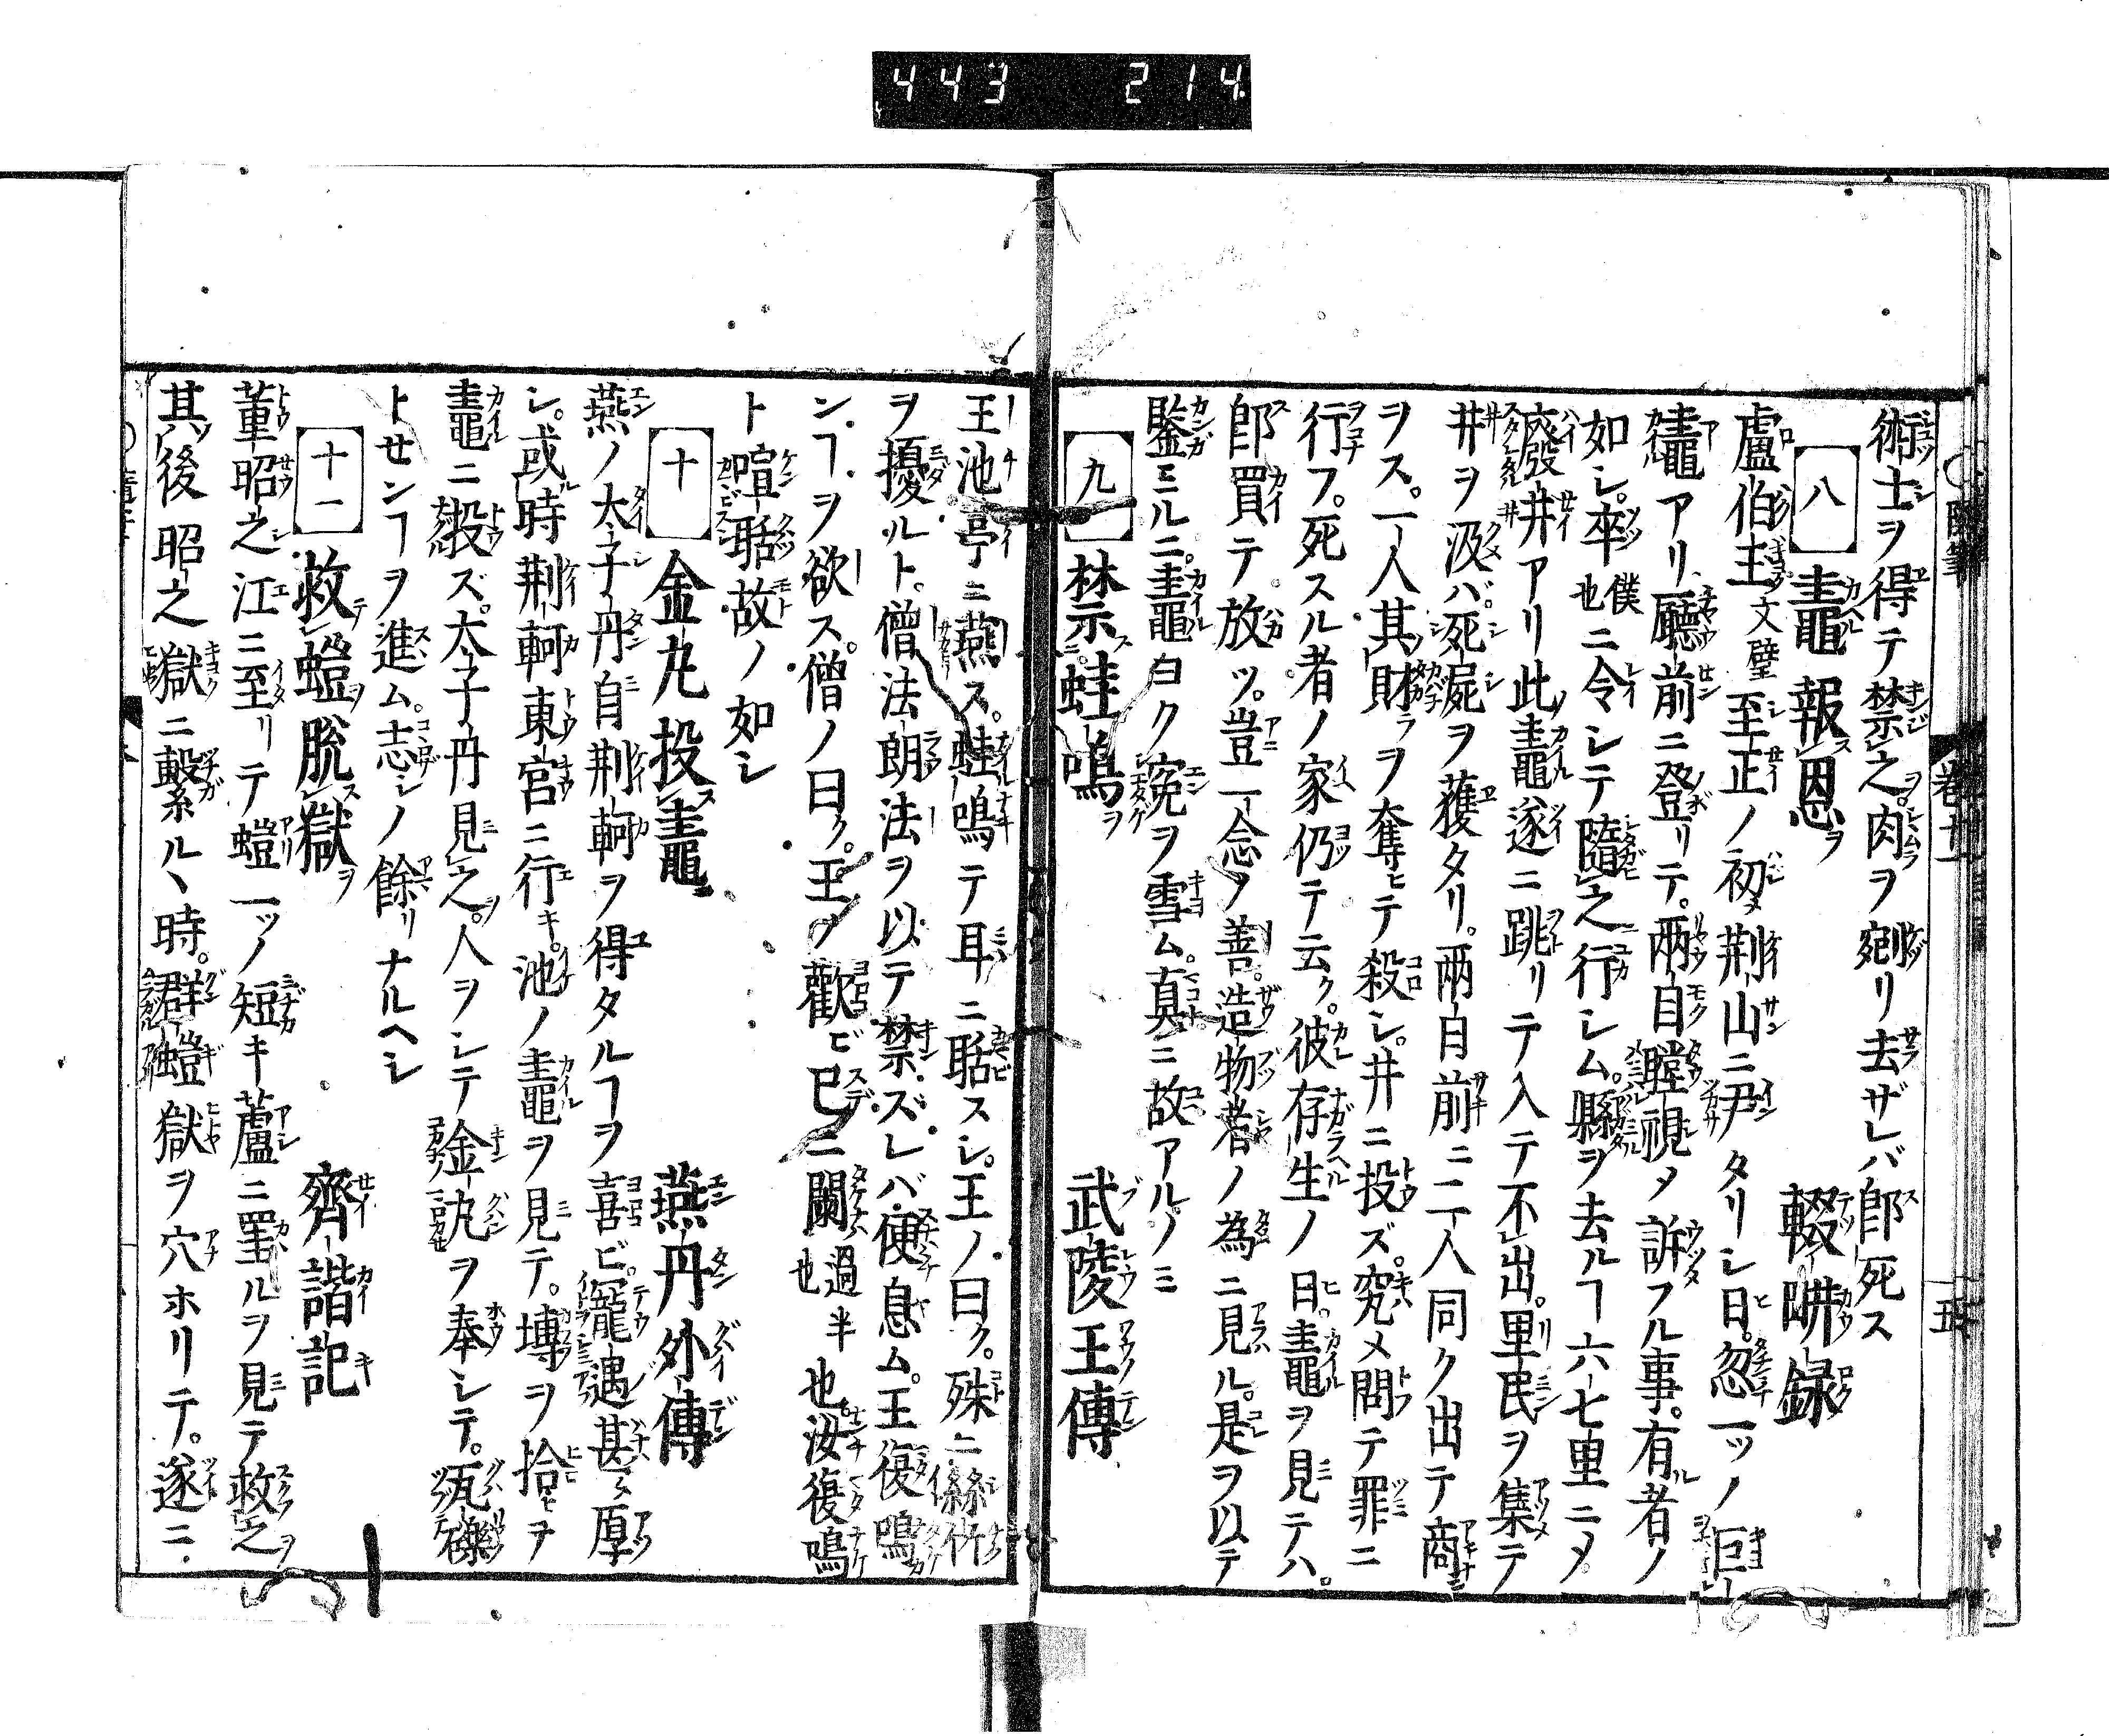 443 214
術士ヲ得テ禁之肉ヲ剜リ去ザレバ即死ス
八 鼃報恩ヲ 輟畊録
盧伯玉文璧至正ノ初メ荆山ニ尹タリシ日。忽一ツノ巨
鼃アリ廳前ニ登リテ。兩目瞠視メ訴フル事。有者ノ
如シ。卒僕也ニ令シテ隨之行シム。縣ヲ去ルヿ六七里ニメ。
廢井アリ此鼃遂ニ跳リテ入テ不出。里民ヲ集テ
井ヲ汲バ。死屍ヲ獲タリ。兩日前ニ二人同ク出テ商
ヲス。一人其財ヲ奪ヒテ殺シ。井ニ投ズ。究メ問テ罪ニ
行フ。死スル者ノ家仍テ云ク。彼存生ノ日。鼃ヲ見テハ。
即買テ放ツ。豈一念ノ善。造物者ノ為ニ見ル。是ヲ以テ
鑒ミルニ。鼃白ク寃ヲ雪ム。真ニ故アルノミ
九 禁蛙鳴ヲ 武陵王傳
王池亭ニ燕ス。蛙鳴テ耳ニ聒スシ。王ノ曰ク。殊ニ絲竹
ヲ擾ルト。僧法朗法ヲ以テ禁ズレバ。便息ム。王復鳴
ンヿヲ欲ス。僧ノ曰ク。王ノ歡ビ已ニ闌過半也也汝復鳴
ト喧聒故ノ如シ
十 金丸投鼃 燕丹外傳
燕ノ太子丹自荆軻ヲ得タルヿヲ喜ビ。寵遇甚タ厚
シ。或時荆軻東宮ニ行キ。池ノ鼃ヲ見テ。塼ヲ拾ヒヲ
鼃ニ投ズ。太子丹見之。人ヲシテ金丸ヲ奉シテ。瓦礫
トセンヿヲ進ム。志シノ餘リナルヘシ
十一 救螘脱獄ヲ 齊諧記
董昭之江ニ至リテ螘一ツノ短キ蘆ニ罣ルヲ見テ救之
其後昭之獄ニ繫ルヽ時。群螘獄ヲ穴ホリテ。遂ニ